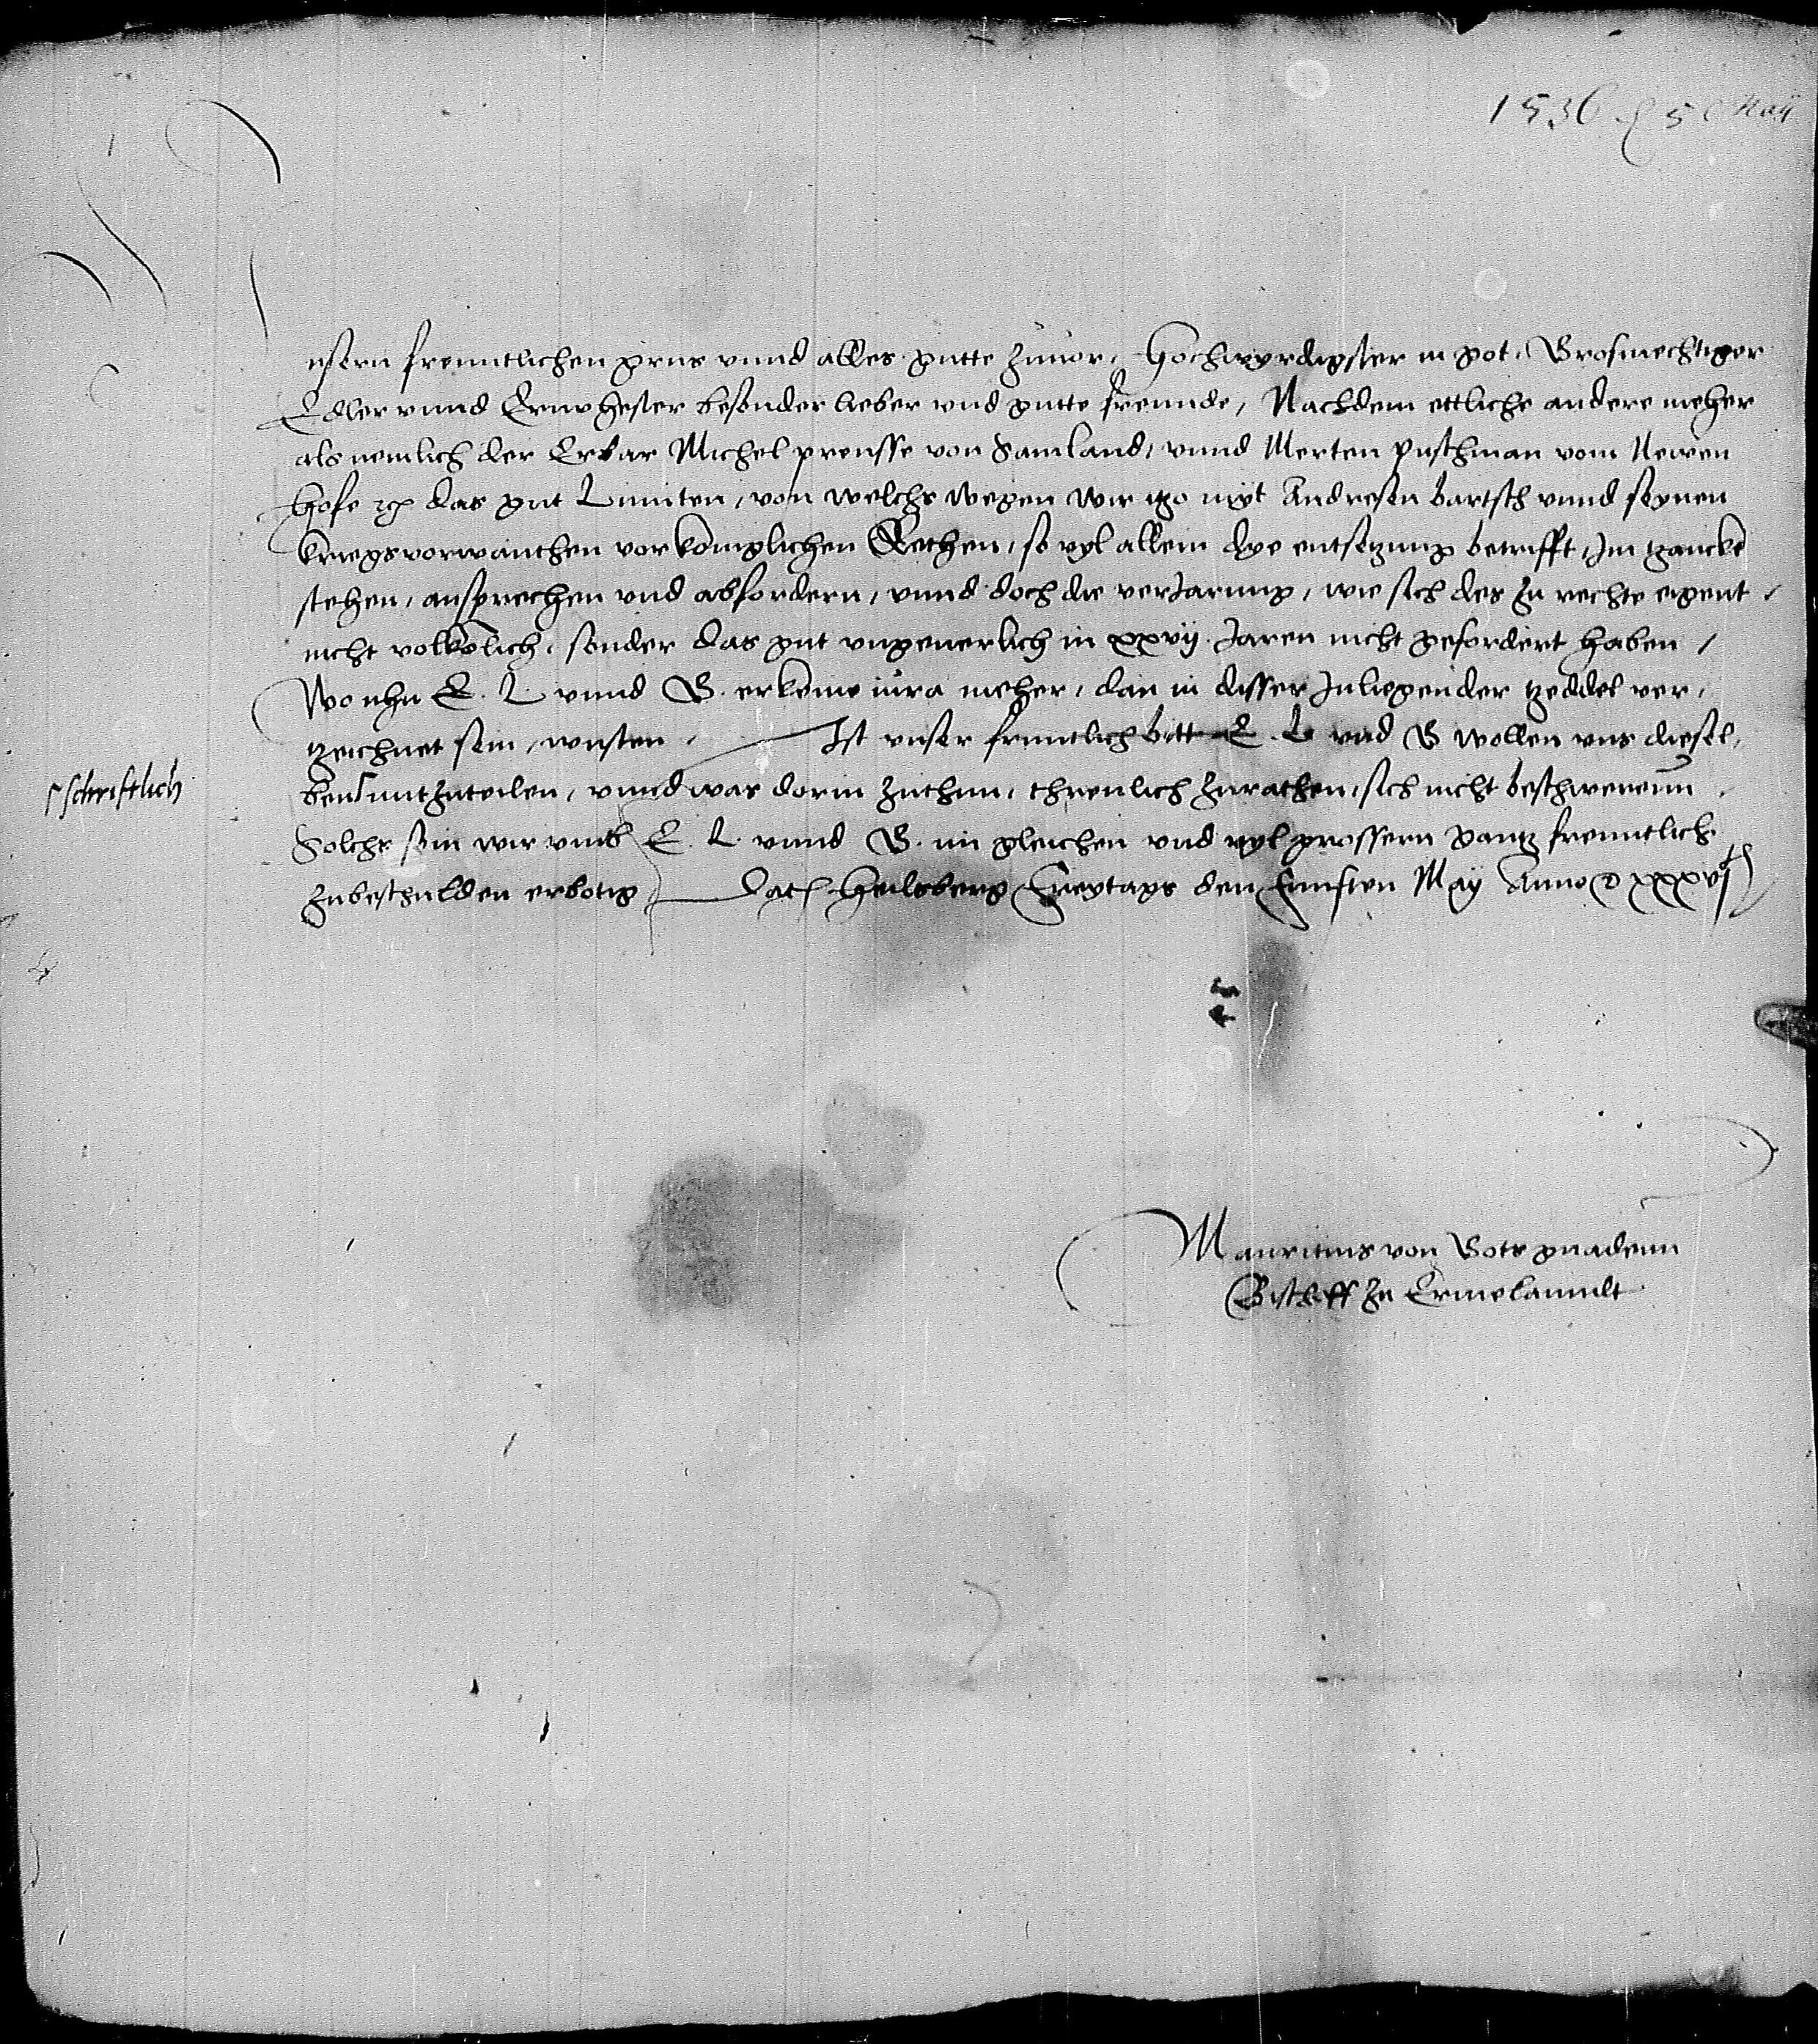 1536 d 5 Maij
nsern freuntlichen grus vnnd alles gutte zuuor, Hochwyrdigster in got, Grosmechtiger
Edler vnnd Ernvhester besonder lieber vnd gutte freunde, Nachdem ettliche andere meher
als nemlich der Erbar Michel preusse von Samland, vnnd Merten puschman vom Newen
Hofe das gut Limiten, von welchs wegen wir itzo myt Andresen bartsch vnnd seynen
kriegsvorwanthen vor königlichen Rethen, so vyl allein dye entsetzung betrifft, Im tzancke
stehen, ansprechen vnd abfordern, vnnd doch die verJarung, wie sich des zu rechte eigent,
nicht volkōlich, sonder das gut vngeuerlich in xxvij. Jaren nicht gefordert haben,
Wo nhu E. L. vnnd G. erkeine iura meher, dan in disser Inliegender tzeddel ver,
tzeichnet sein, wusten, Ist vnser fruntlich bitt E. L. vnd G wollen vns diesel,
ben mitzuteilen, vnnd was dorin zuthun, threulich zurathen, sich nicht beschwerenn,
schriftlich
Solchs sein wir vmb E. L. vnnd G. im gleichen vnd vyl grossern gantz freuntlich
zubeschulden erbotig, Dat Heilsberg Freytags den Funften May Anno xxxvj
Mauritius von Gots gnadenn
Bischoff zu Ermelanndt